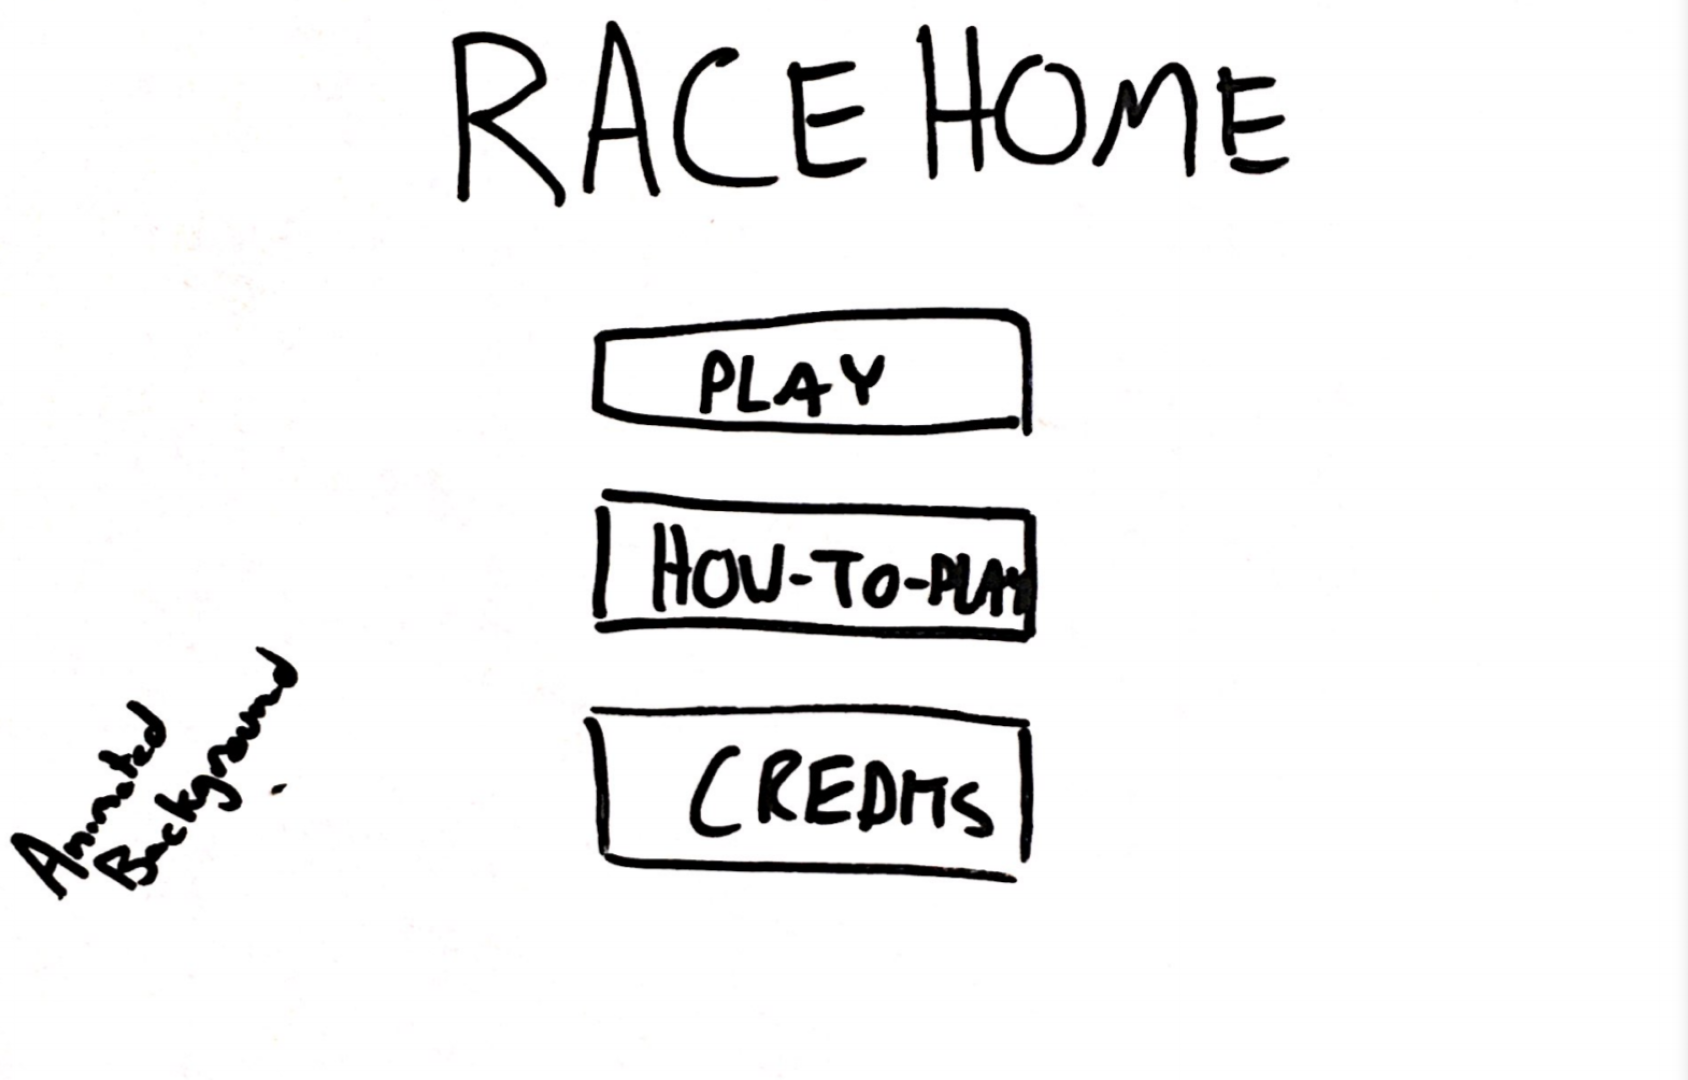 RACE HOME
PLAY
HOW-TO-PLAY
CREDITS
Animated
Background